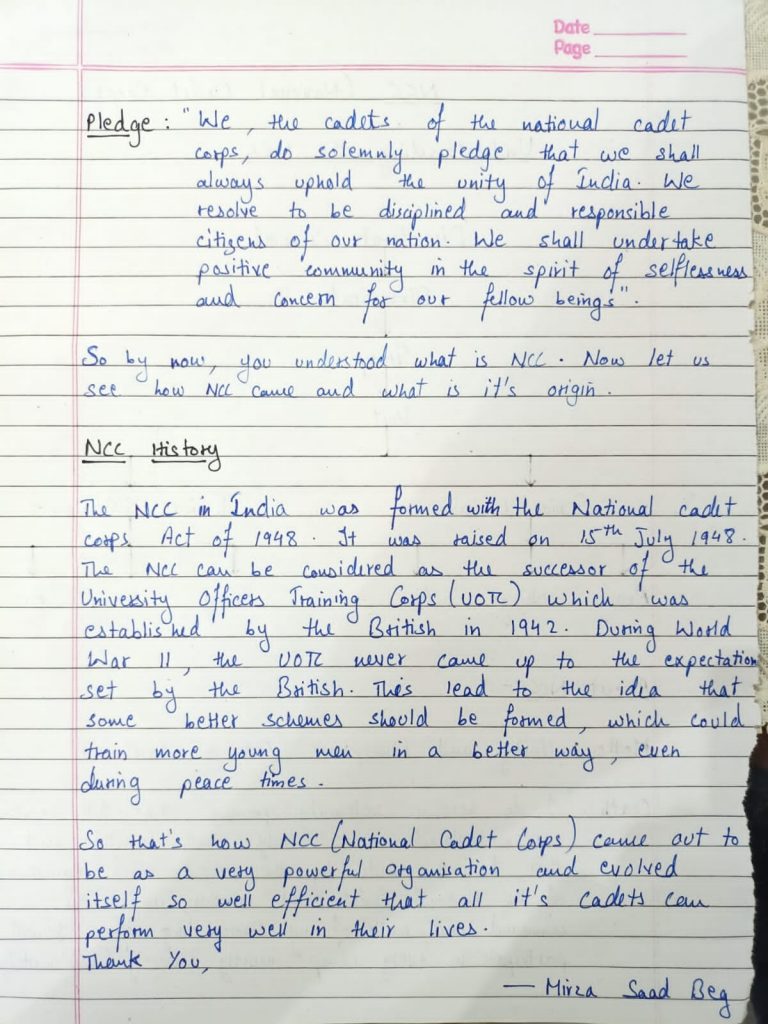 Date
Page
Pledge : "We, the cadets of the national cadet
corps, do solemnly pledge that we shall
always uphold the unity of India. We
resolve to be disciplined and responsible
citizens of our nation. We shall undertake
positive community in the spirit of selflessness
and concern for our fellow beings".
So by now, you understood what is NCC. Now let us
see how NCC came and what is it's origin.
NCC History
The NCC in India was formed with the National cadet
corps Act of 1948. It was raised on 15th July 1948.
The NCC can be considered as the successor of the
University Officers Training Corps (UOTC) which was
established by the British in 1942. During World
War II, the UOTC never came up to the expectation
set by the British. This lead to the idea that
some better schemes should be formed, which could
train more young men in a better way, even
during peace times.
So that's how NCC (National Cadet Corps) came out to
be as a very powerful organisation and evolved
itself so well efficient that all it's cadets can
perform very well in their lives.
Thank You,
— Mirza Saad Beg